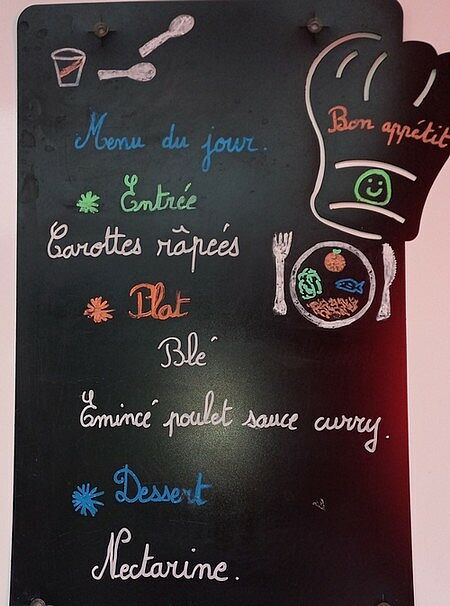 Menu du jour.
Bon appétit
Entrée
Carottes râpées
Plat
Blé
Emincé poulet sauce curry.
Dessert
Nectarine.